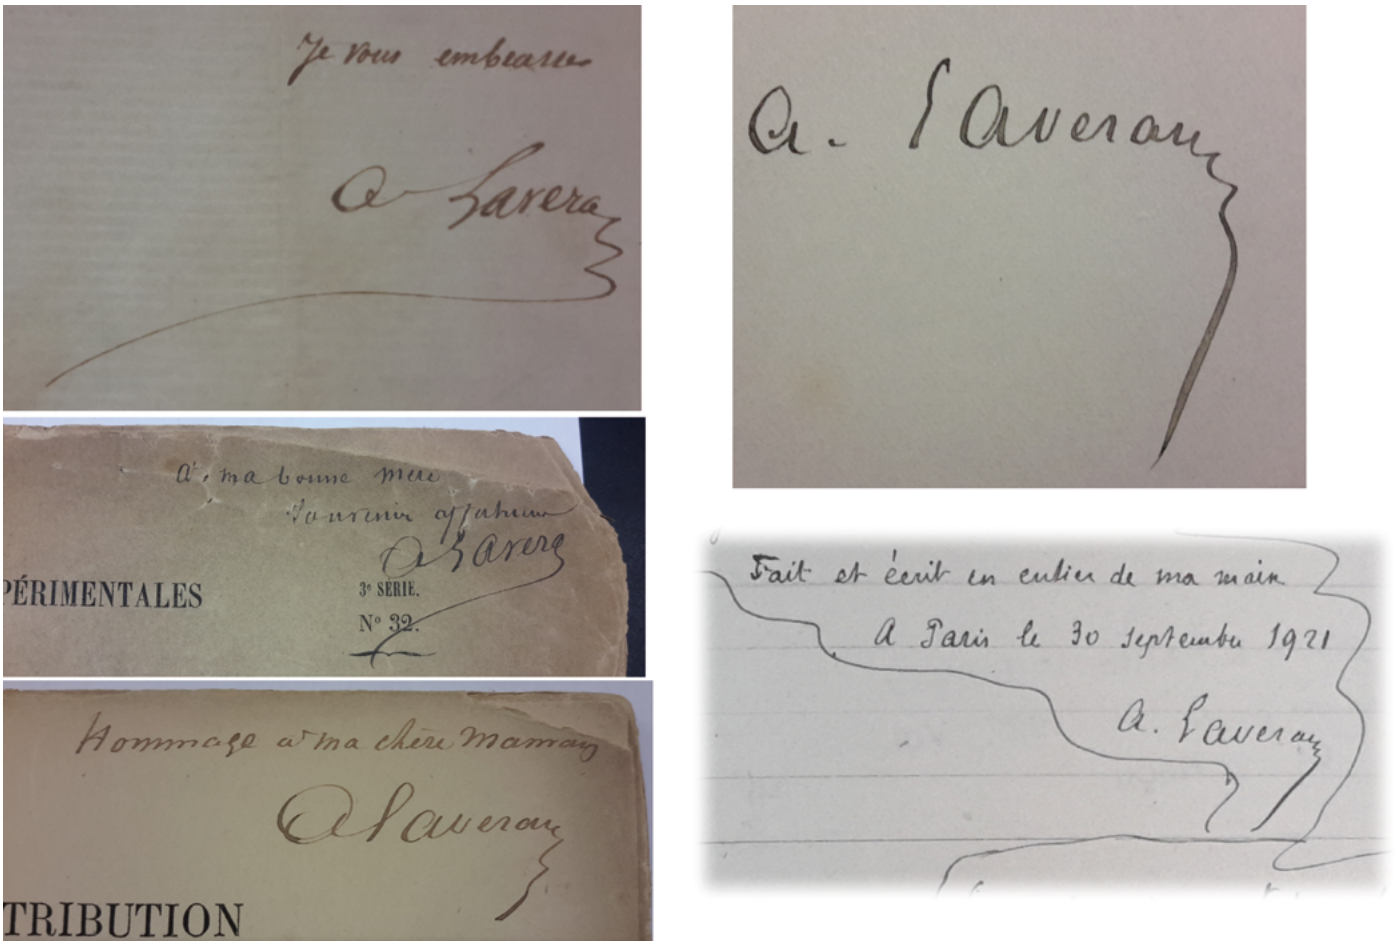 Je vous embrasse
A Laveran
A. Laveran
A ma bonne mère
Souvenir affectueux
A Laveran
PÉRIMENTALES
3e SÉRIE.
N° 32.
Hommage à ma chère Maman
A Laveran
TRIBUTION
Fait et écrit en entier de ma main
A Paris le 30 septembre 1921
A. Laveran